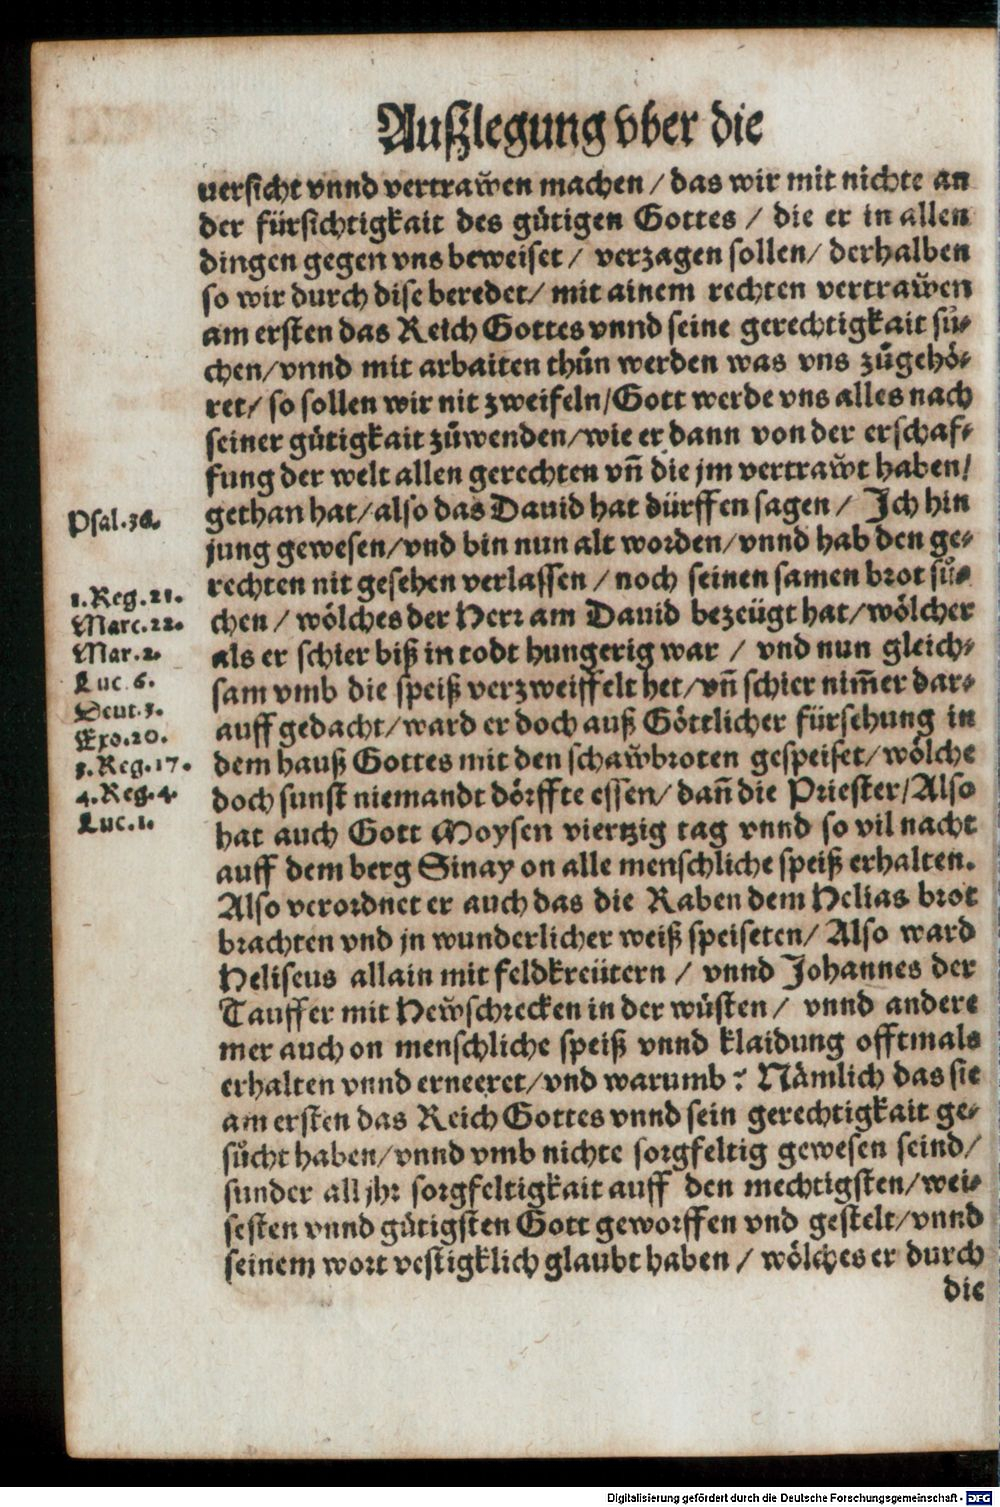 Auſzlegung vber die
uerſicht vnnd vertrawͤen machen / das wir mit nichte an
der fürſichtigkait des guͤtigen Gottes / die er in allen
dingen gegen vns beweiſet / verzagen ſollen / derhalben
ſo wir durch diſe beredet / mit ainem rechten vertrawͤen
am erſten das Reich Gottes vnnd ſeine gerechtigkait ſuͤ⸗
chen / vnnd mit arbaiten thuͦn werden was vns zuͦgehoͤ⸗
ret / ſo ſollen wir nit zweifeln / Gott werde vns alles nach
ſeiner guͤtigkait zuͦwenden / wie er dann von der erſchaf⸗
fung der welt allen gerechten vñ die jm vertrawͤt haben /
Psal.36. gethan hat / alſo das Dauid hat dürffen ſagen / Ich bin
jung geweſen / vnd bin nun alt worden / vnnd hab den ge⸗
1.Reg.21. rechten nit geſehen verlaſſen / noch ſeinen ſamen brot ſuͦ⸗
Marc.22. chen / woͤlches der Herr am Dauid bezeügt hat / woͤlcher
Mar.2. als er ſchier biß in todt hungerig war / vnd nun gleich⸗
Luc.6. ſam vmb die ſpeiß verzweiffelt het / vñ ſchier nim̃er dar⸗
Deut.3. auff gedacht / ward er doch auß Goͤttlicher fürſehung in
Exo.20.
3.Reg.17. dem hauß Gottes mit den ſchawͤbroten geſpeiſet / woͤlche
4.Reg.4. doch ſunſt niemandt doͤrffte eſſen / dañ die Prieſter / Alſo
Luc.1. hat auch Gott Moyſen viertzig tag vnnd ſo vil nacht
auff dem berg Sinay on alle menſchliche ſpeiß erhalten.
Alſo verordnet er auch das die Raben dem Helias brot
brachten vnd jn wunderlicher weiß ſpeiſeten / Alſo ward
Heliſeus allain mit feldkreütern / vnnd Johannes der
Tauffer mit Hewͤſchrecken in der wuͤſten / vnnd andere
mer auch on menſchliche ſpeiß vnnd klaidung offtmals
erhalten vnnd erneeret / vnd warumb? Naͤmlich das ſie
am erſten das Reich Gottes vnnd ſein gerechtigkait ge⸗
ſuͦcht haben / vnnd vmb nichte ſorgfeltig geweſen ſeind /
ſunder all jhr ſorgfeltigkait auff den mechtigſten / wei⸗
ſeſten vnnd guͤtigſten Gott geworffen vnd geſtelt / vnnd
ſeinem wort veſtigklich glaubt haben / woͤlches er durch
die
Digitalisierung gefördert durch die Deutsche Forschungsgemeinschaft - DFG